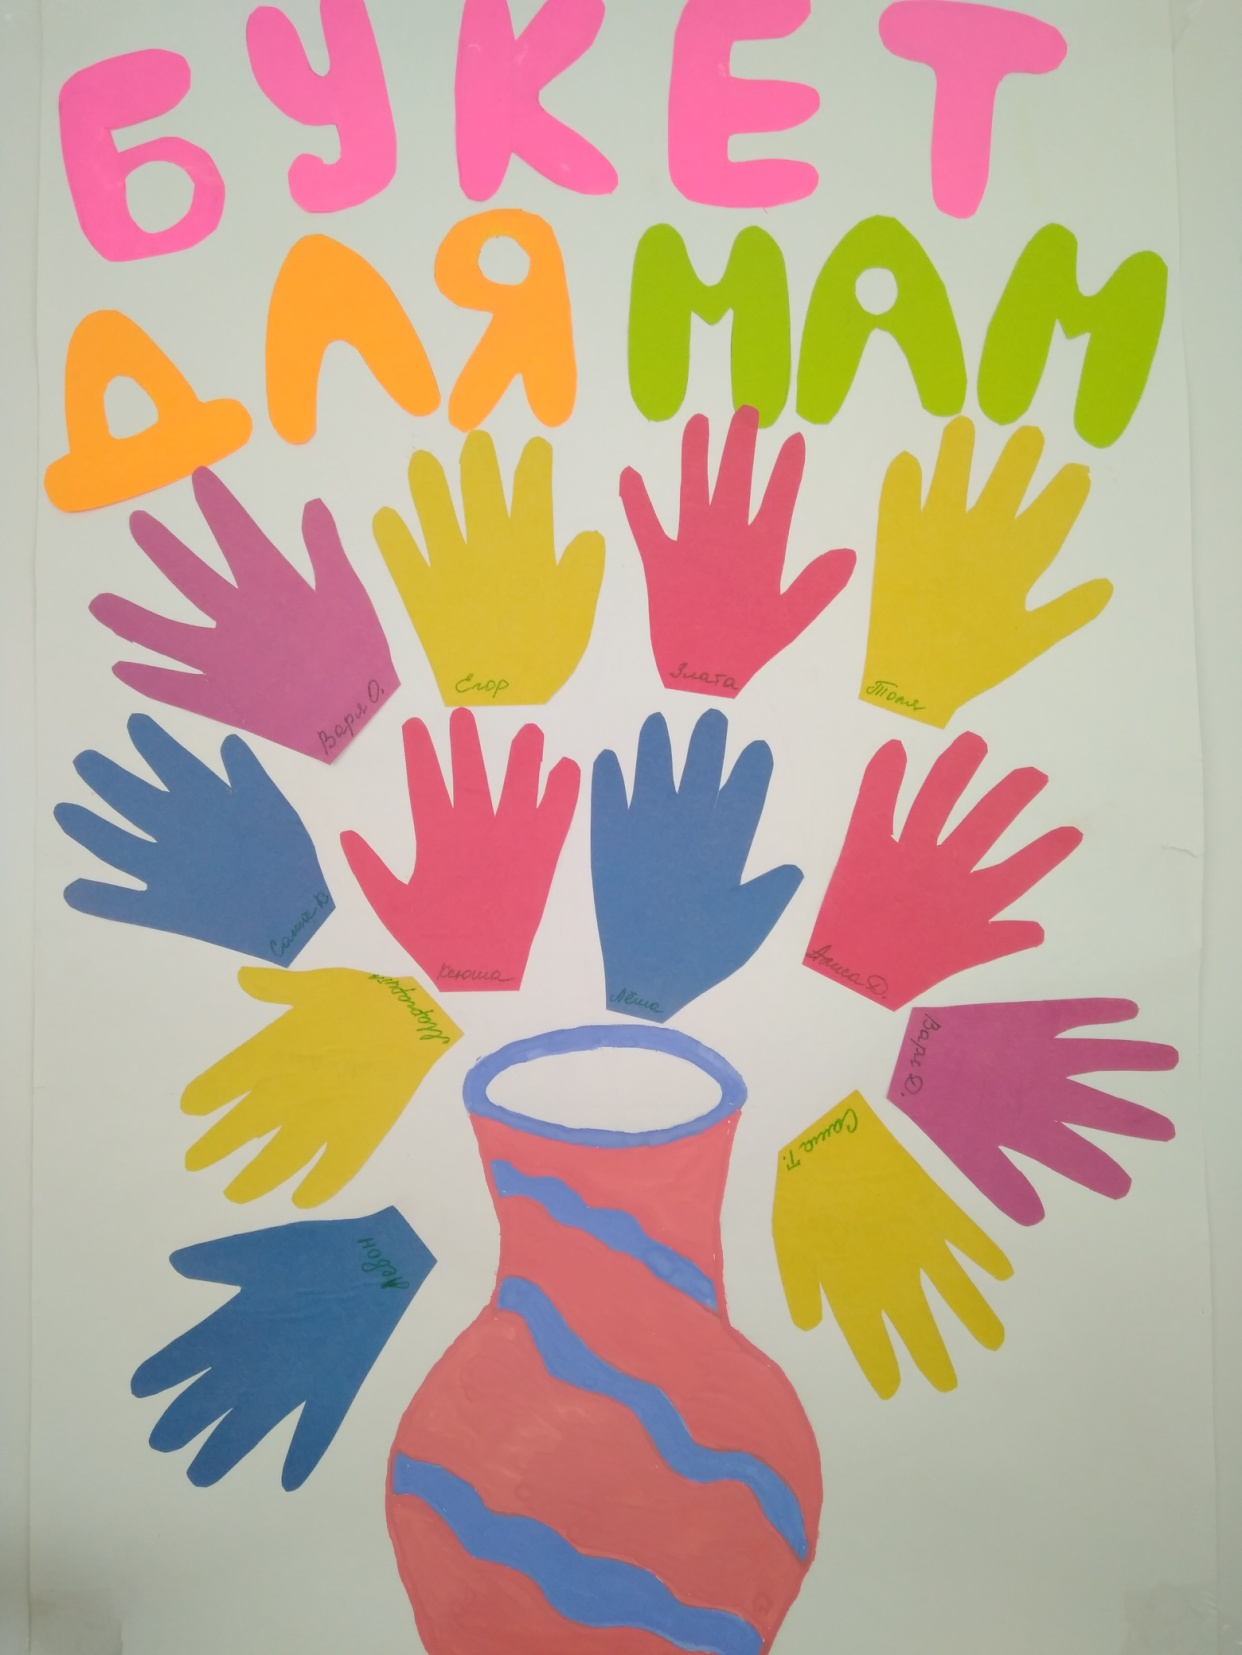 БУКЕТ
ДЛЯ МАМ
Варя О.
Егор
Злата
Толя
Саша В
Ксюша
Лёша
Алиса Д.
Маргарита
Варя Д.
Саша Т.
Левон